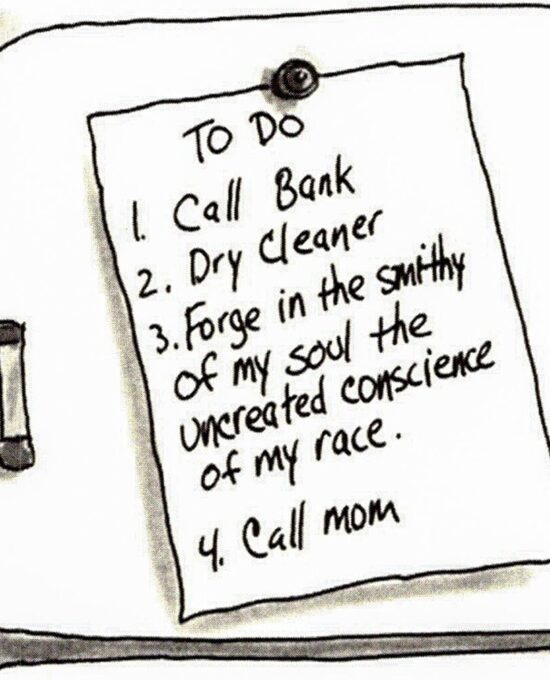 TO DO
1. Call Bank
2. Dry Cleaner
3. Forge in the smithy
of my soul the
uncreated conscience
of my race.
4. Call mom